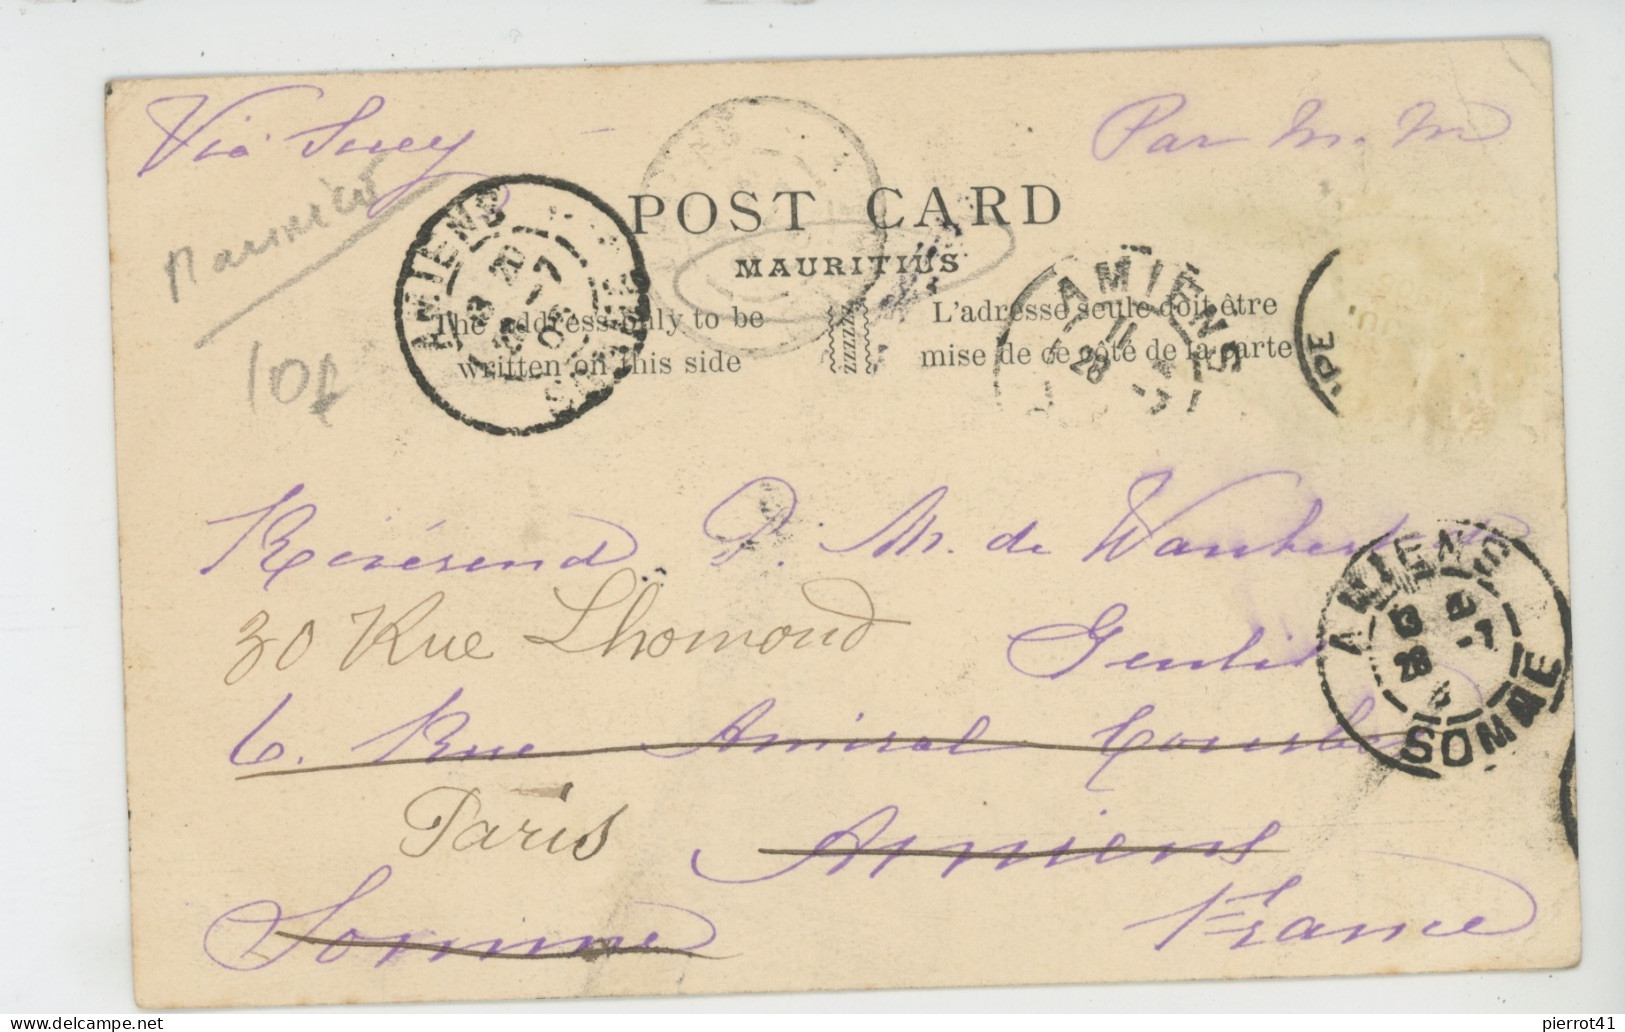 Via Suez
Par M. M
Maurice
10f
POST CARD
MAURITIUS
The address only to be
written on this side
L'adresse seule doit être
mise de ce côté de la carte
AMIENS
AMIENS
Révérend P. M. de
30 Rue Lhomond
6. Rue Amiral Courbet
Paris
Amiens
Somme
France
AMIENS
SOMME
pierrot41